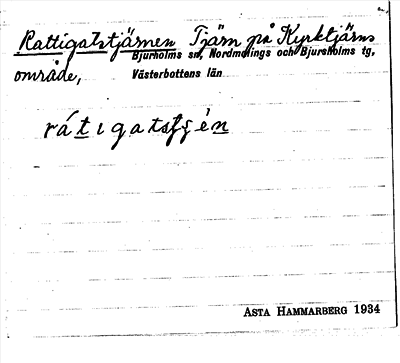 Rattigatstjärnen Tjärn på Kyrktjärns
Bjurholms sn, Nordmalings och Bjurholms tg,
område, Västerbottens län
rátıgatsʃɕèn
ASTA HAMMARBERG 1934